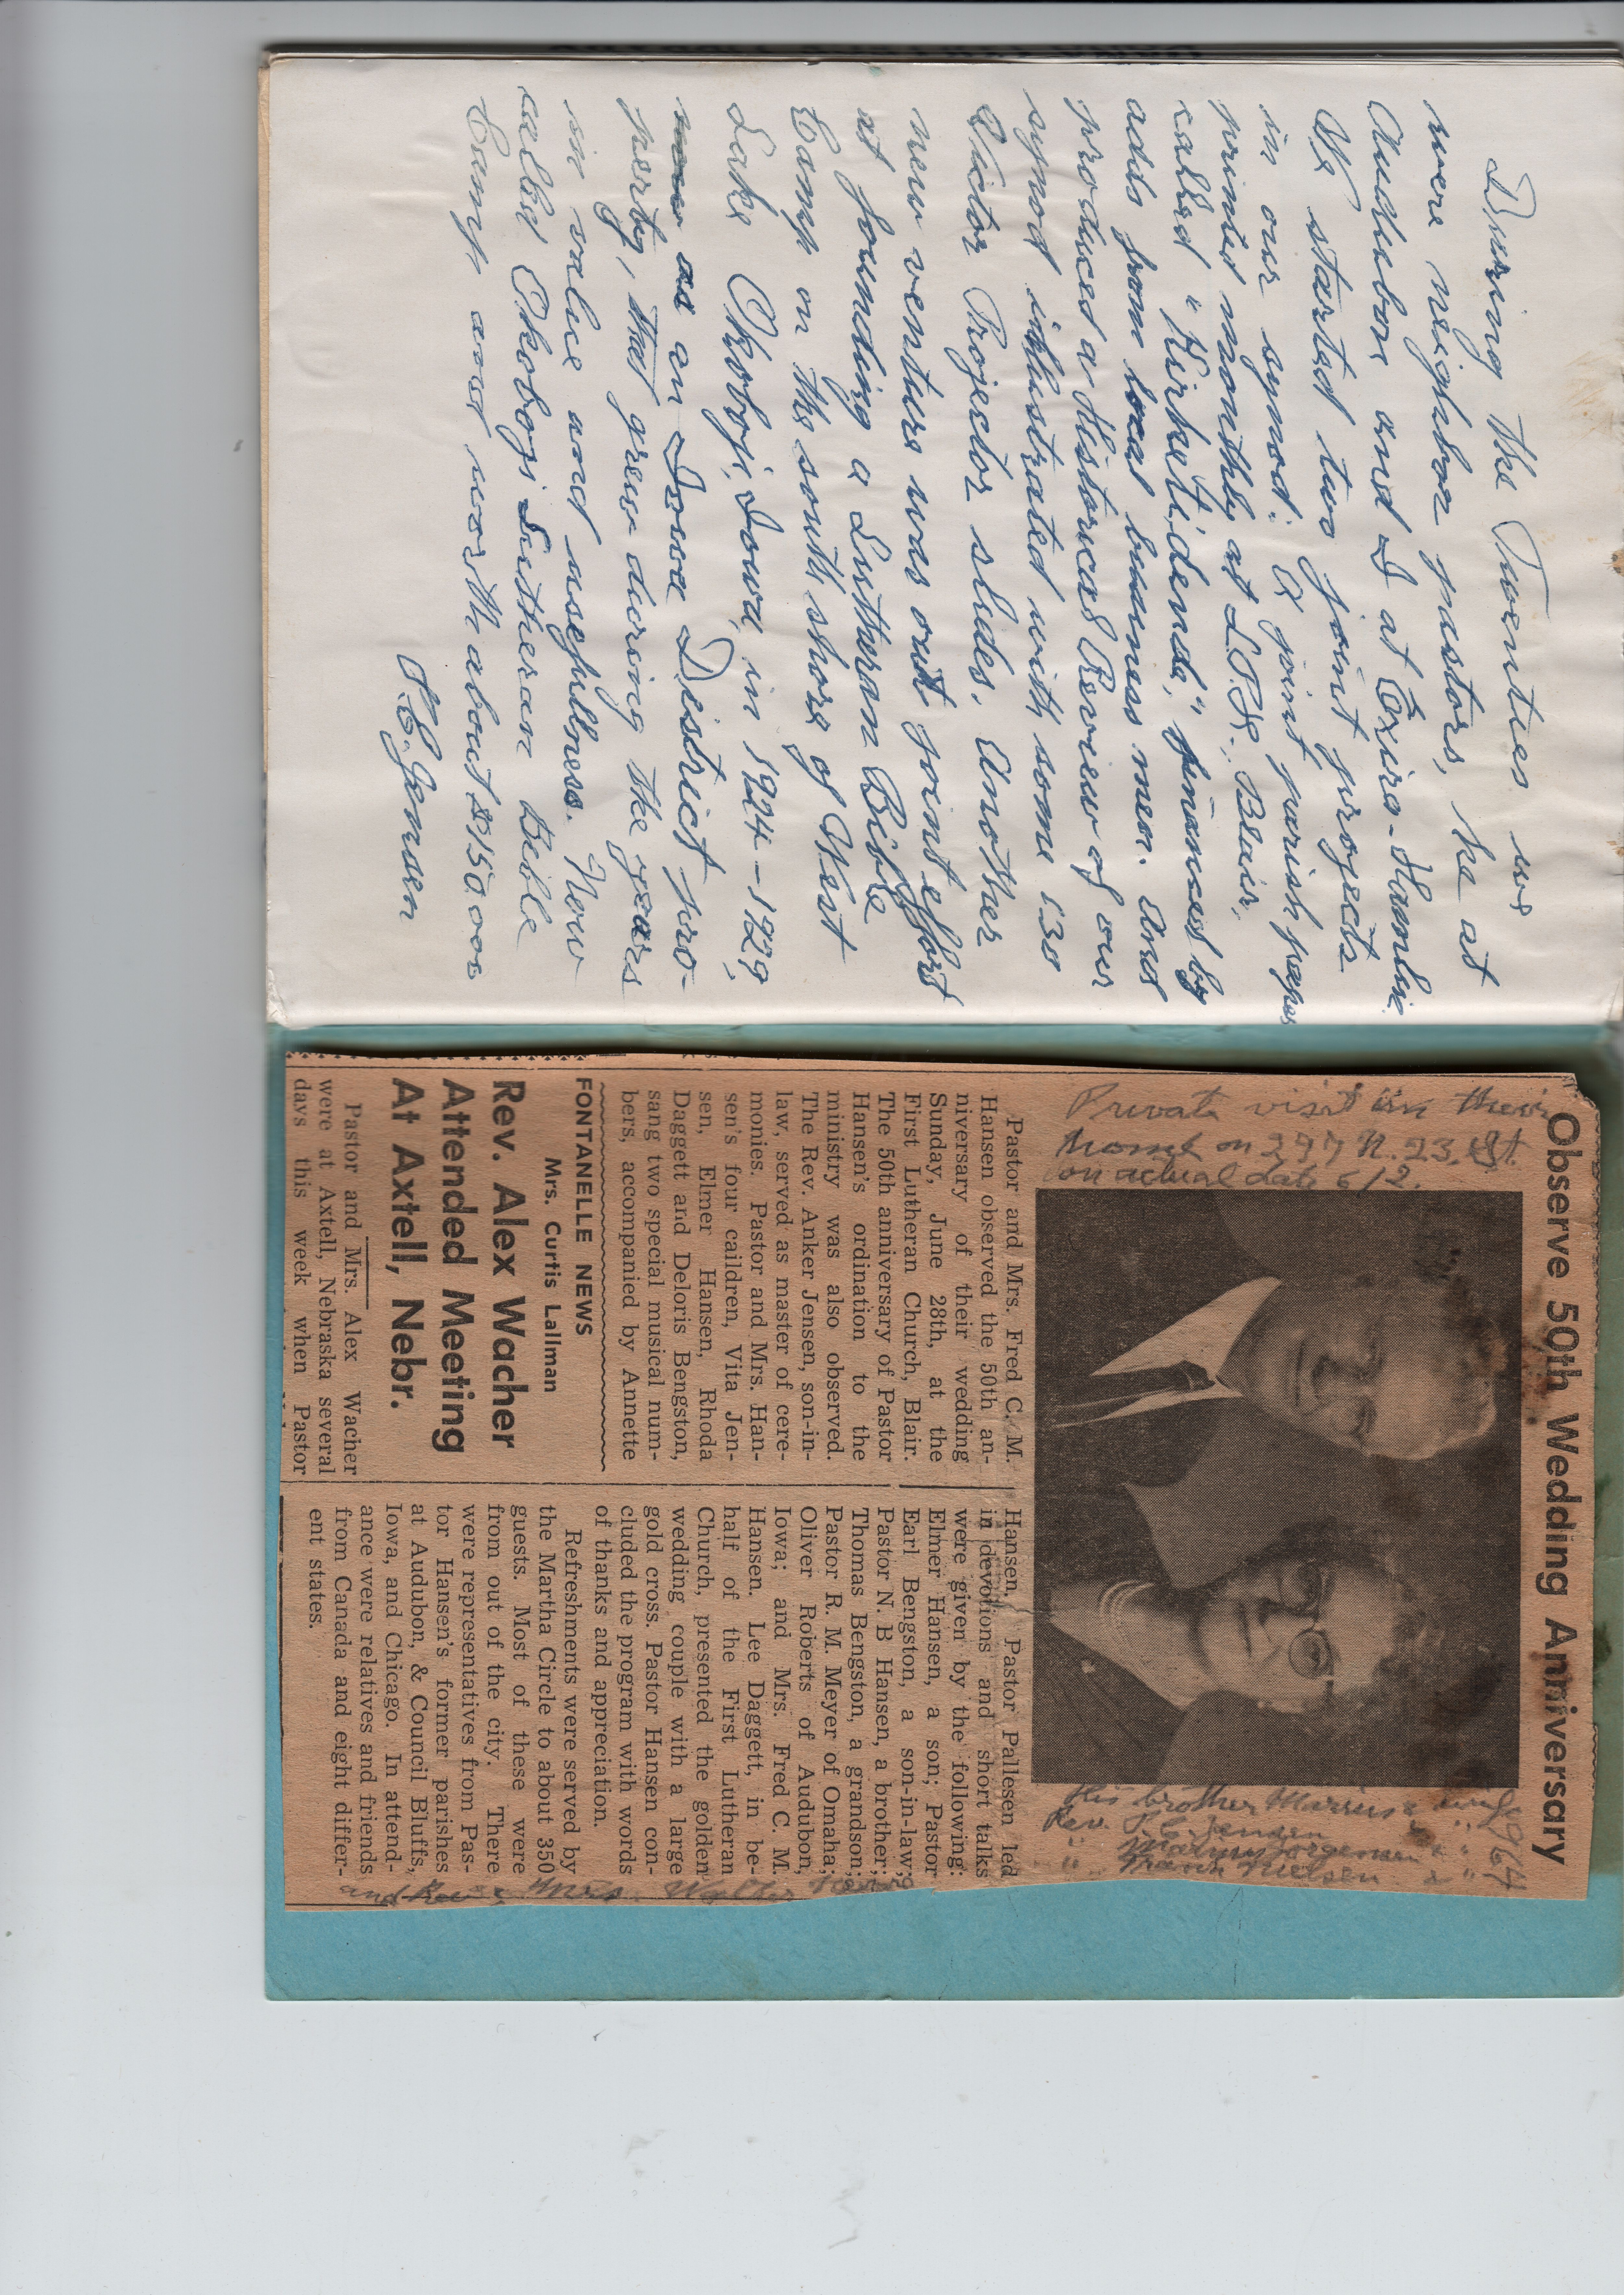 During the Twenties we
were neighbor pastors, he at
Audubon and I at Exira-Hamlin.
We started two joint projects
in our synod: A joint parish paper
printed monthly at L.P.H., Blair,
called "Kirketidende," financed by
adds from local business men. And
produced a Historical Review of our
synod illustrated with some 130
Victor Projector slides. Another
new venture was out joint effort
at founding a Lutheran Bible
Camp on the south shore of West
Lake Okoboji, Iowa, in 1924-1929,
as an Iowa District pro-
perty, that grew during the years
in value and usefullness. Now
called Okoboji Lutheran Bible
Camp and worth about $150.000
P.C. Jensen
Observe 50th Wedding Anniversary
Private visit in their
home on 297 N. 23. St.
on actual date 6/2.
1964
His brother Marius & wife
Rev. P.C. Jensen " "
" Marius Jorgensen & "
" Frank Nielsen & "
and Rev. & Mrs. Walter
Pastor and Mrs. Fred C. M.
Hansen observed the 50th an-
niversary of their wedding
Sunday, June 28th, at the
First Lutheran Church, Blair.
The 50th anniversary of Pastor
Hansen's ordination to the
ministry was also observed.
The Rev. Anker Jensen, son-in-
law, served as master of cere-
monies. Pastor and Mrs. Han-
sen's four caildren, Vita Jen-
sen, Elmer Hansen, Rhoda
Daggett and Deloris Bengston,
sang two special musical num-
bers, accompanied by Annette
Hansen. Pastor Pallesen led
in devotions and short talks
were given by the following:
Elmer Hansen, a son; Pastor
Earl Bengston, a son-in-law;
Pastor N. B Hansen, a brother;
Thomas Bengston, a grandson;
Pastor R. M. Meyer of Omaha;
Oliver Roberts of Audubon,
Iowa; and Mrs. Fred C. M.
Hansen. Lee Daggett, in be-
half of the First Lutheran
Church, presented the golden
wedding couple with a large
gold cross. Pastor Hansen con-
cluded the program with words
of thanks and appreciation.
Refreshments were served by
the Martha Circle to about 350
guests. Most of these were
from out of the city. There
were representatives from Pas-
tor Hansen's former parishes
at Audubon, & Council Bluffs,
Iowa, and Chicago. In attend-
ance were relatives and friends
from Canada and eight differ-
ent states.
FONTANELLE NEWS
Mrs. Curtis Lallman
Rev. Alex Wacher
Attended Meeting
At Axtell, Nebr.
Pastor and Mrs. Alex Wacher
were at Axtell, Nebraska several
days this week when Pastor